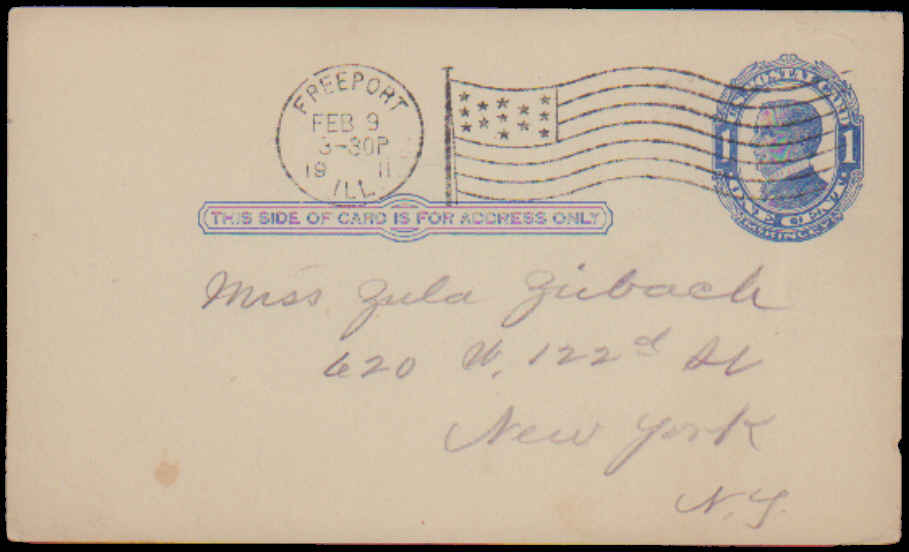 FREEPORT
FEB 9
3-30P
19 11
ILL.
1 1
THIS SIDE OF CARD IS FOR ADDRESS ONLY
Miss Zula Zubach
620 W. 122d St
New York
N.Y.